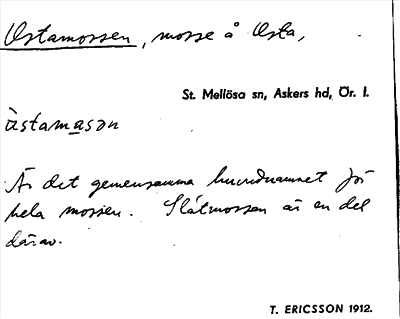 Östamossen, mosse å Östa,
St. Mellösa sn, Askers hd, Ör. l.
östamasən
Är det gemensamma huvudnamnet för
hela mossen. Slåtmossen är en del
därav.
T. ERICSSON 1912.